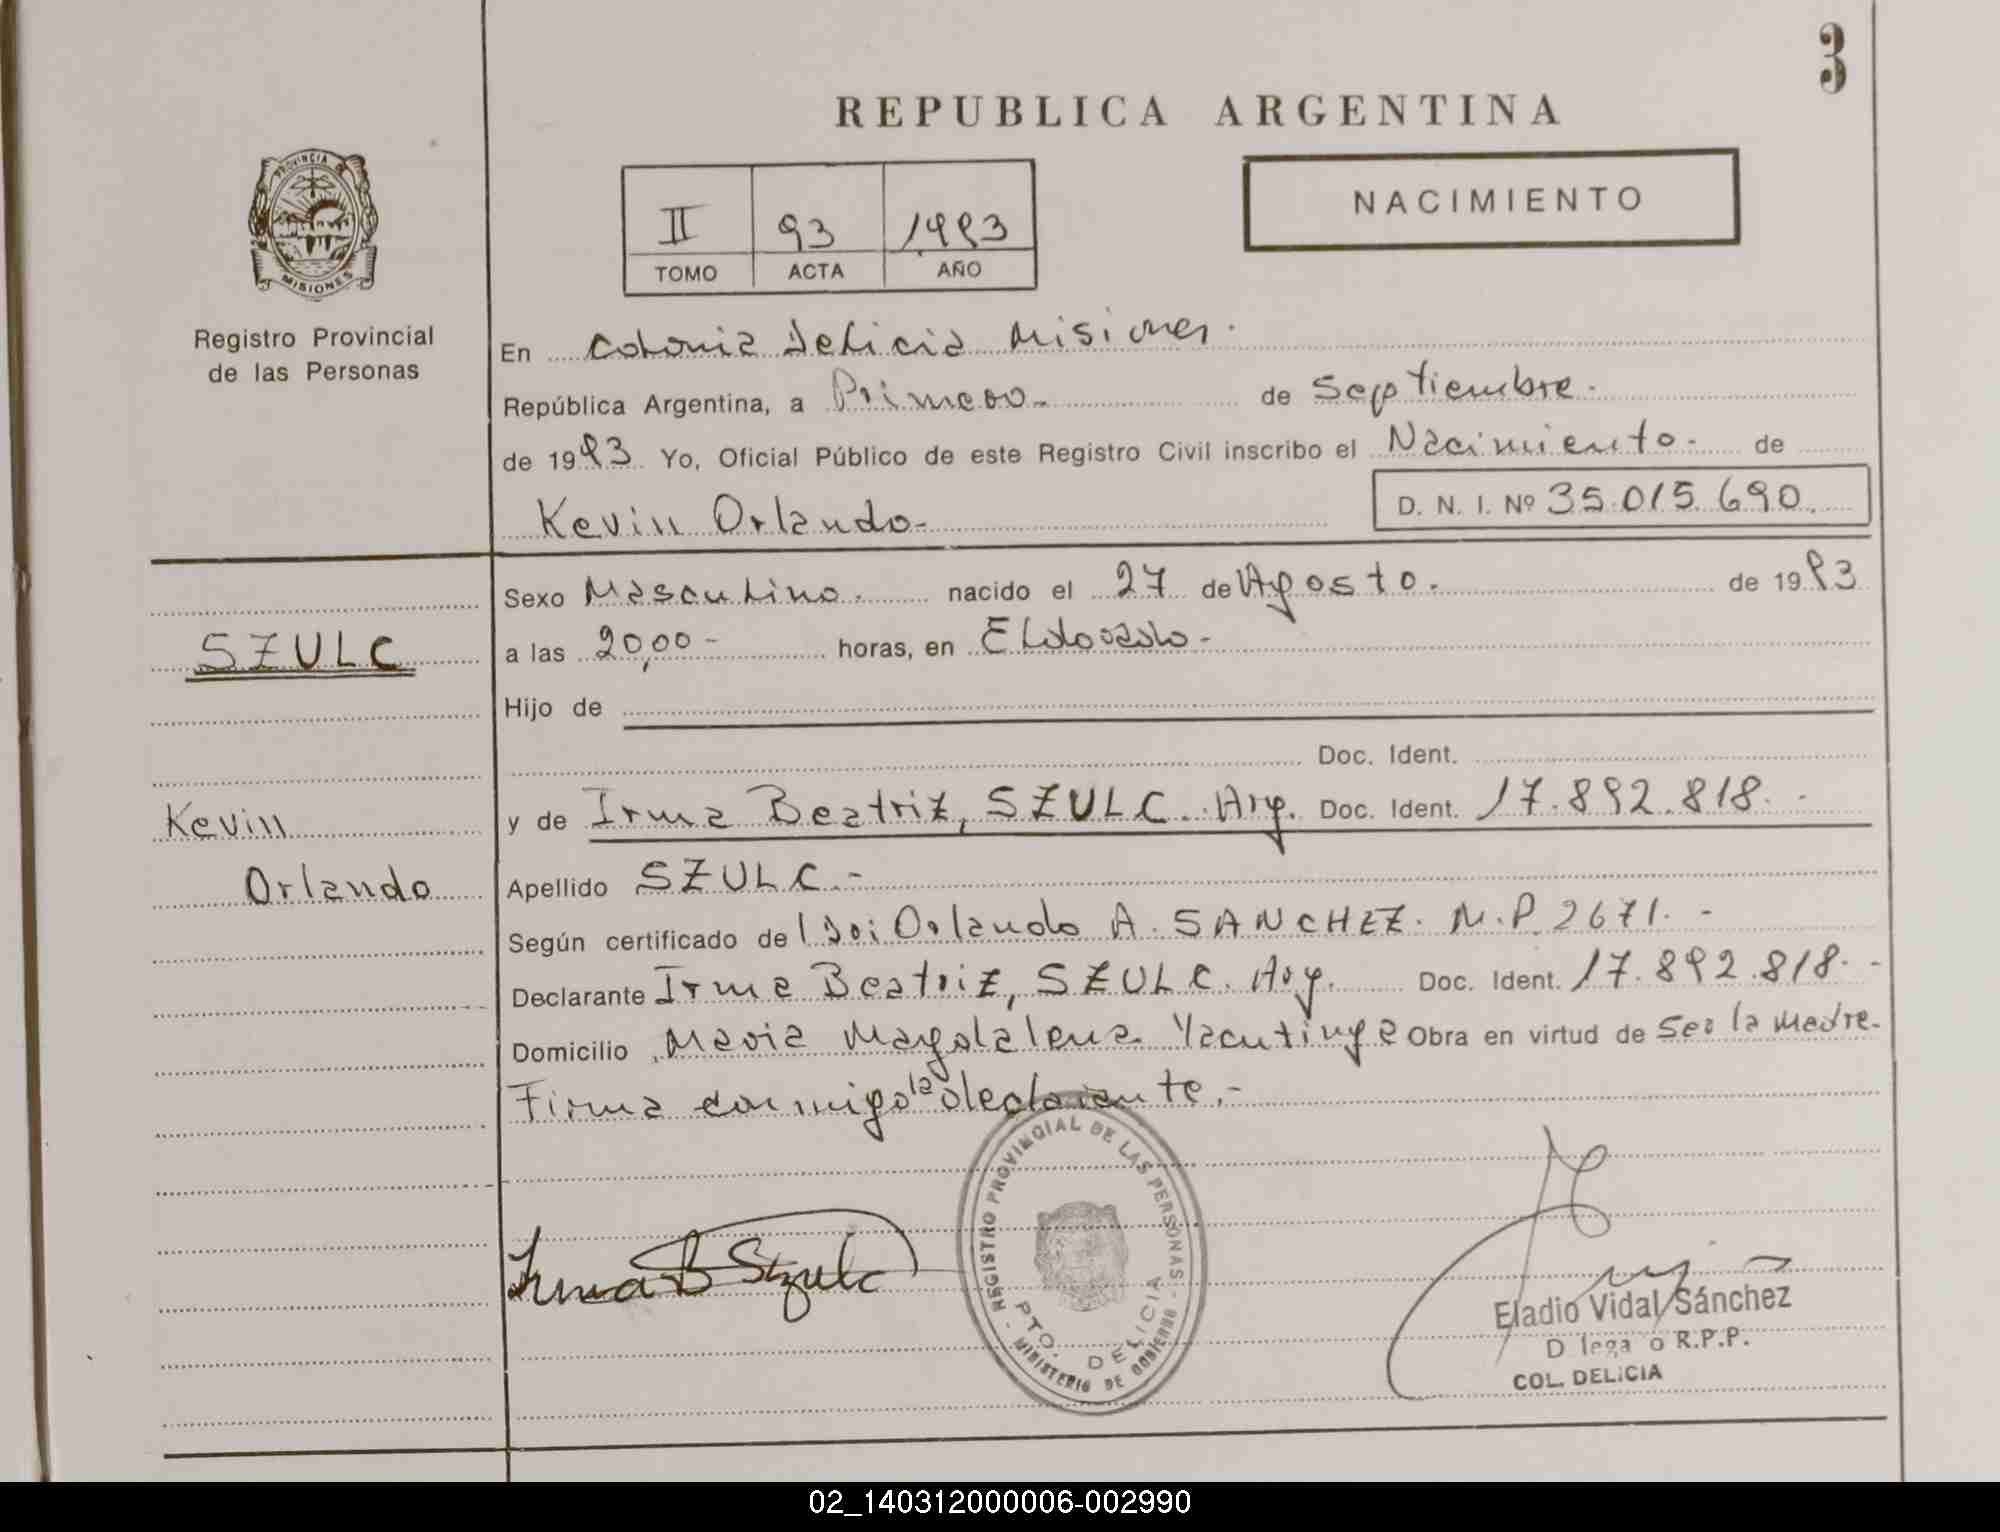 3
REPUBLICA ARGENTINA
PROVINCIA DE
MISIONES
Registro Provincial
de las Personas
II 93 1993
TOMO ACTA AÑO
NACIMIENTO
En Colonia Delicia Misiones.
República Argentina, a Primero- de Septiembre.
de 1993 Yo, Oficial Público de este Registro Civil inscribo el Nacimiento- de
Kevin Orlando- D. N. I. Nº 35.015.690.
Sexo Masculino. nacido el 27 de Agosto. de 1993
SZULC
a las 20,00- horas, en Eldorado-
Hijo de
Doc. Ident.
Kevin
y de Irma Beatriz, SZULC. Arg. Doc. Ident. 17.892.818.-
Orlando
Apellido SZULC.-
Según certificado de Orlando A. SANCHEZ. M.P. 2671.-
Declarante Irma Beatriz, SZULC. Arg. Doc. Ident. 17.892.818.-
Domicilio Maria Magdalena Yacutinga Obra en virtud de Ser la madre.
Firma conmigo la declarante.-
REGISTRO PROVINCIAL DE LAS PERSONAS - MINISTERIO DE GOBIERNO -
PTO. DELICIA
Irma B Szulc
Eladio Vidal Sánchez
D lega o R.P.P.
COL. DELICIA
02_140312000006-002990